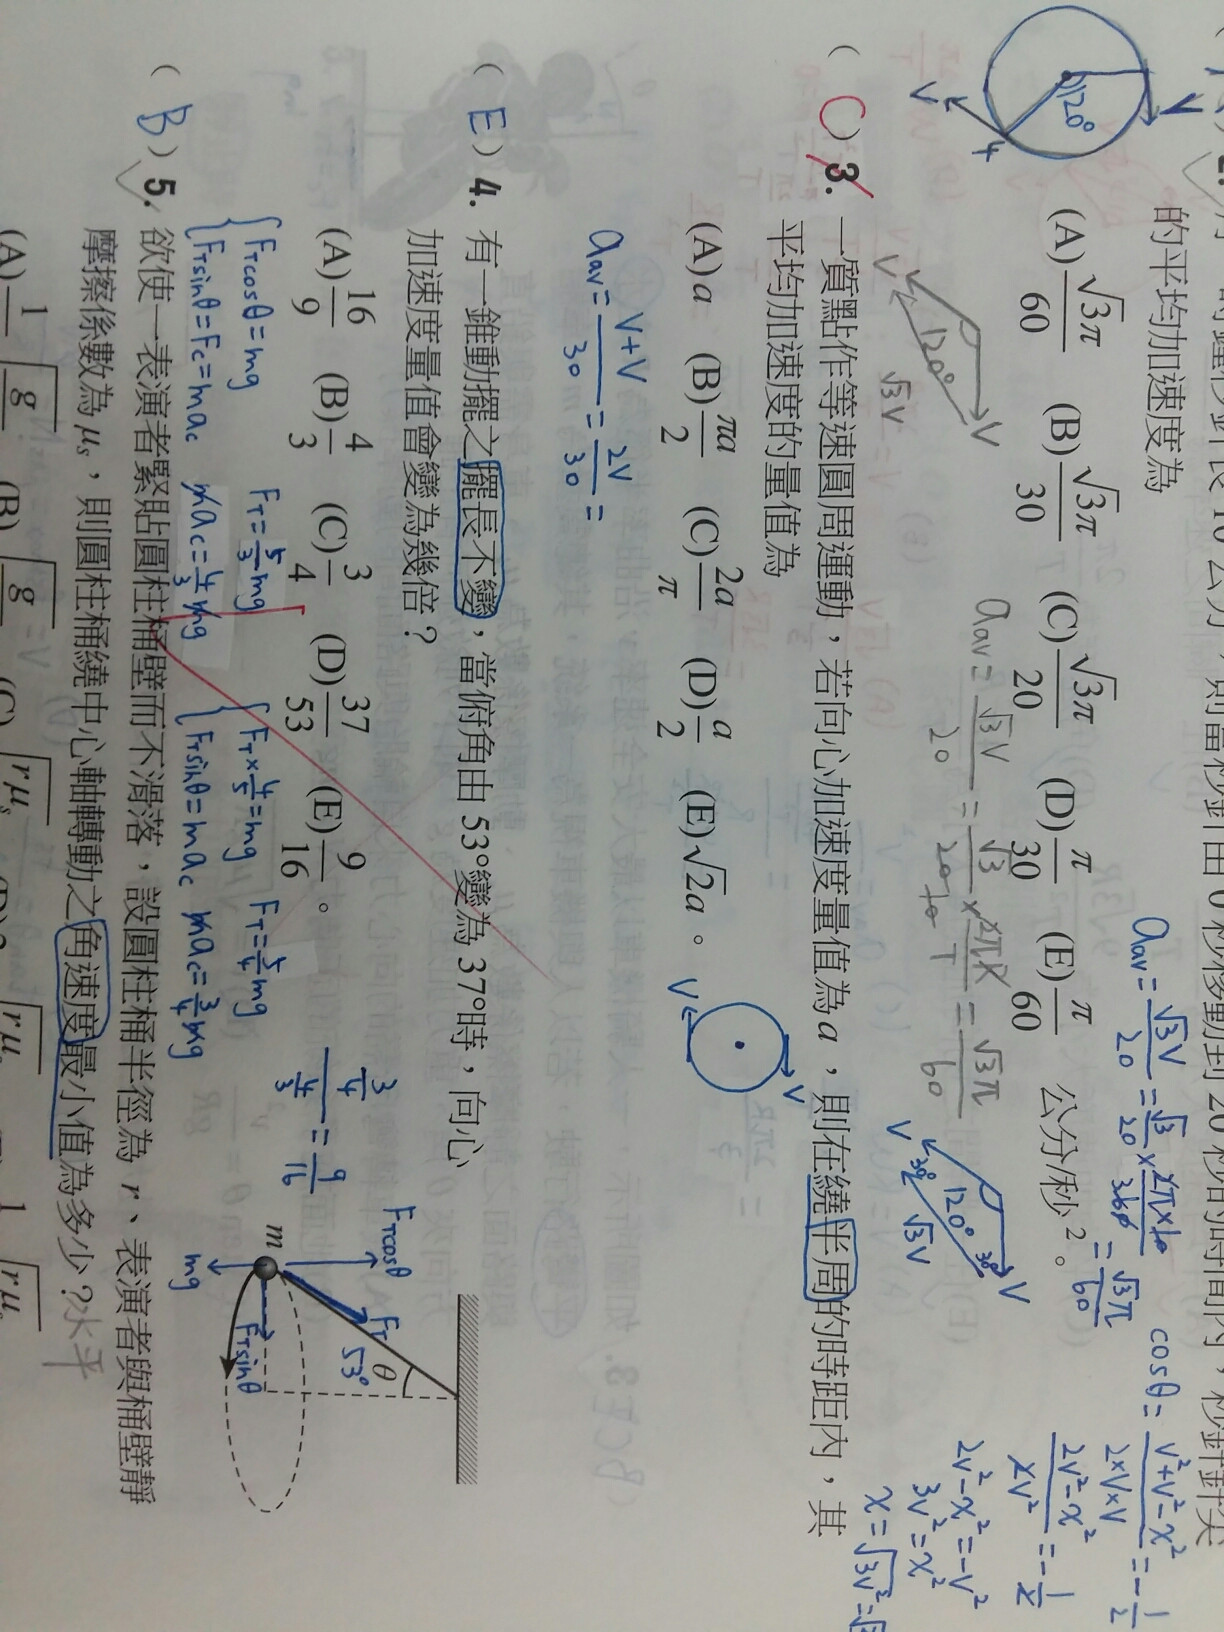 的平均加速度為
(A) √3π/60 (B) √3π/30 (C) √3π/20 (D) π/30 (E) π/60 公分/秒²。
120°
V
V
4
a_av = √3V/20 = √3/20 × 2π×10/360 = √3π/60
cosθ = (V²+V²-x²)/(2×V×V) = -1/2
(2V²-x²)/(2V²) = -1/2
2V²-x² = -V²
3V² = x²
V
V
120°
√3V
V
V
120°
30°
30°
√3V
(C) 3. 一質點作等速圓周運動,若向心加速度量值為 a,則在繞半周的時距內,其
平均加速度的量值為
(A) a (B) πa/2 (C) 2a/π (D) a/2 (E) √2a。
V
V
a_av = (V+V)/30 = 2V/30 =
(E) 4. 有一錐動擺之擺長不變,當俯角由 53°變為 37°時,向心
加速度量值會變為幾倍?
(A) 16/9 (B) 4/3 (C) 3/4 (D) 37/53 (E) 9/16。
F_T cosθ = mg
F_T sinθ = Fc = mac
F_T = 5/3 mg
mac = 4/3 mg
F_T × 4/5 = mg
F_T sinθ = mac
F_T = 5/4 mg
mac = 3/4 mg
(3/4)/(4/3) = 9/16
F_T cosθ
F_T
53°
θ
m
mg
F_T sinθ
(B) 5. 欲使一表演者緊貼圓柱桶壁而不滑落,設圓柱桶半徑為 r、表演者與桶壁靜
摩擦係數為 μs,則圓柱桶繞中心軸轉動之角速度最小值為多少?水平